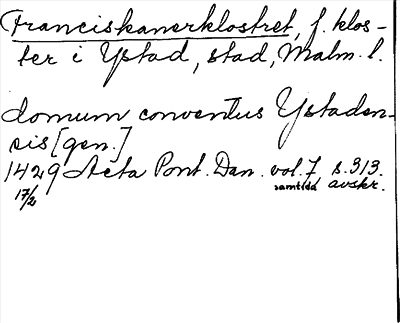 Franciskanerklostret, f. klos-
ter i Ystad, stad, Malm. l.
domum conventus Ystaden-
sis [gen.]
1429 Acta Pont. Dan. vol. 7, s. 313.
17/2 samtida avskr.